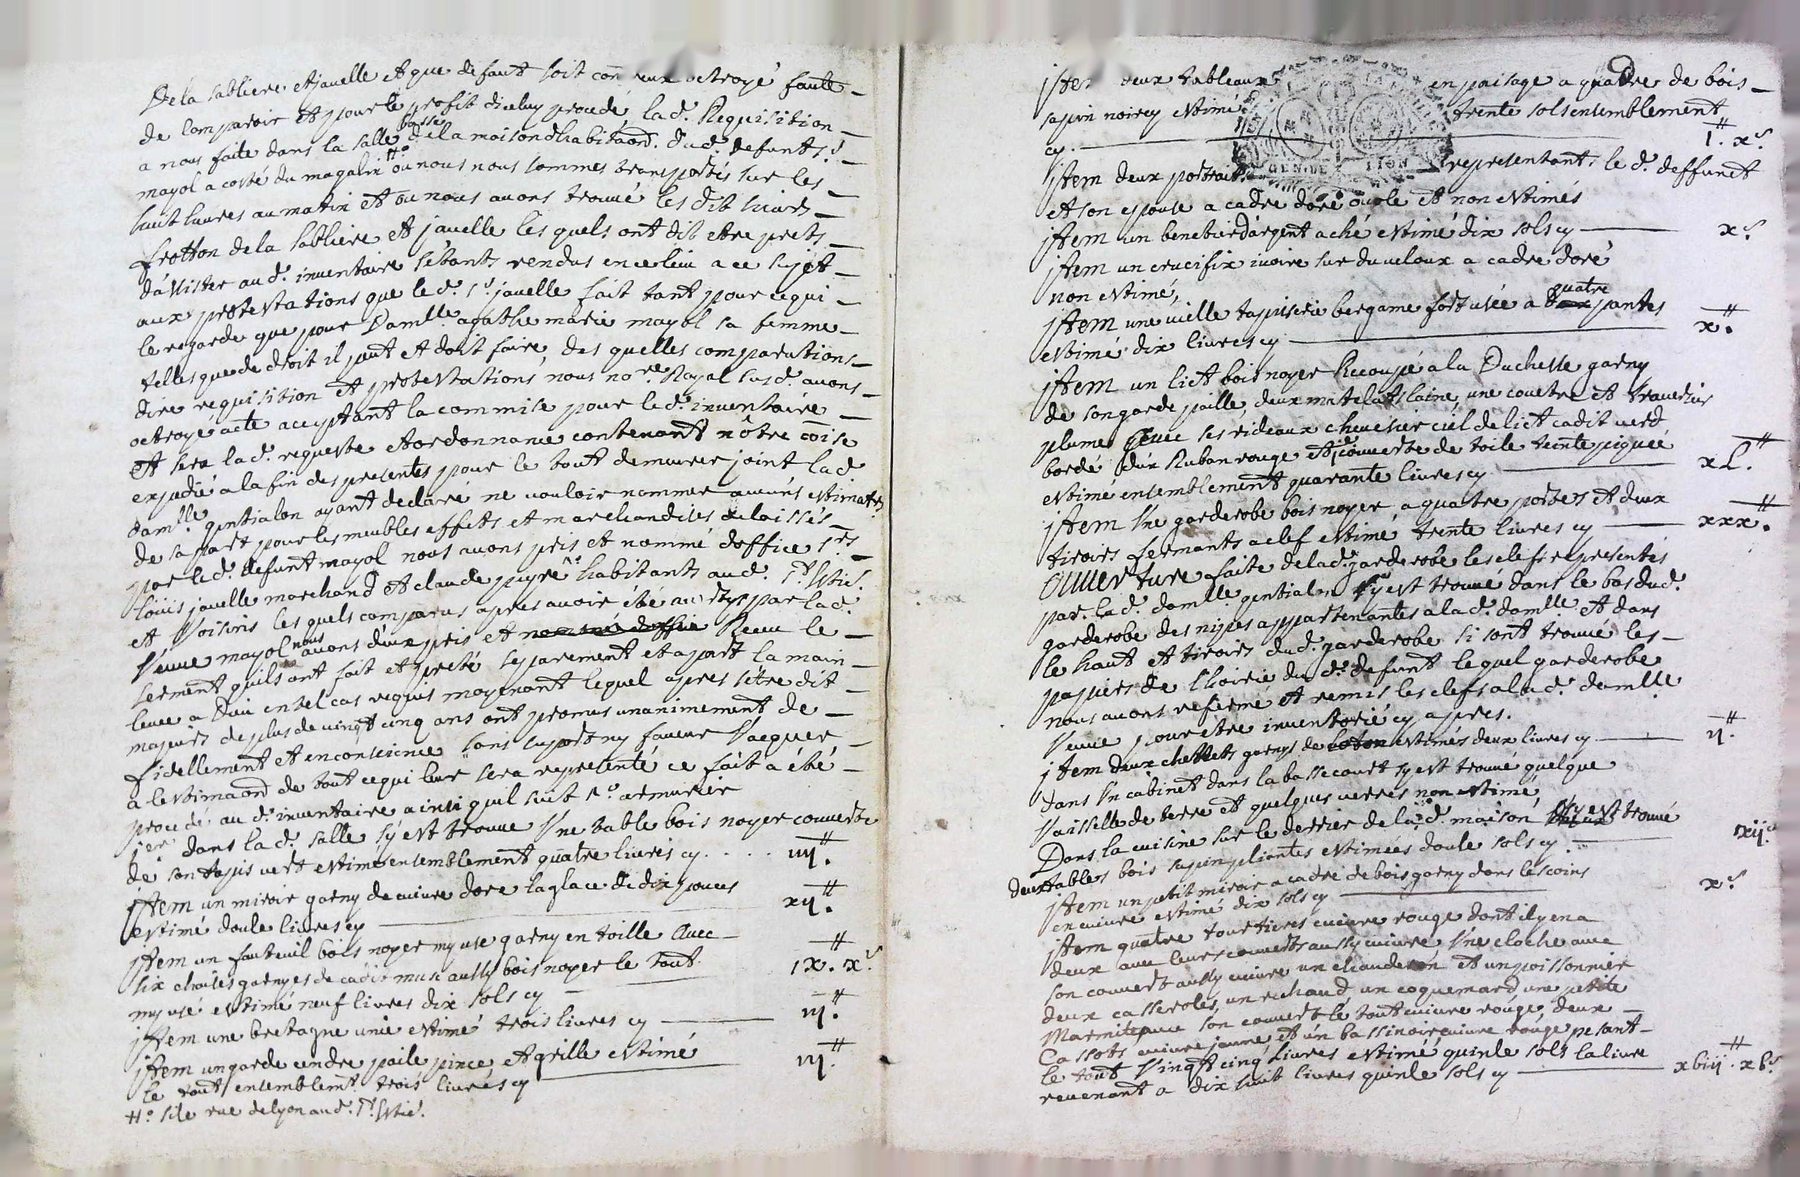 De la sabliere et javelle et que defaut soit contreux octroyé faute
de comparoir et pour le profit d'iceluy procedé, la d. Requisition
a nous faite dans la salle basse de la maison d'habitaon. du d. defunt s.r
mayol a costé du magasin # ou nous nous sommes transportés sur les
huit heures au matin et ou nous avons trouvé les dits sieurs
frotton de la sabliere et javelle lesquels ont dit etre prets
d'assister au d. inventaire s'etants rendus en ce lieu a ce sujet
aux protestations que le d. s.r javelle fait tant pour ce qui
le regarde que pour Damlle. agathe marie mayol sa femme
telles que de droit il peut et doit faire, des quelles comparutions
dire requisition et protestations nous no.re Royal susd. avons
octroyé acte acceptant la commise pour le d. inventaire
et sera la d. requeste et ordonnance contenant nôtre coise
expedié a la fin des presentes pour le tout demeurer joint la d.
damlle gentialon ayant declaré ne vouloir nommer aucuns estimat.rs
de sa part pour les meubles effets et marchandises delaissés
par le d. defunt mayol nous avons pris et nommé d'office s.rs
Loüis javelle marchand et claude peyre habitants au d. s.t Estie.
et Voisins lesquels comparus apres avoir été avertys par la d.
Veuve mayol nous avons d'eux pris et Receu le
serment quils ont fait et preté separement et apart la main
levée a Dieu en tel cas requis moyenant lequel apres s'etre dit
majeurs de plus de vingt cinq ans ont promis unanimement de
fidellement et en conscience sans suport ny faveur Vacquer
a l'estimaon de tout ce qui leur sera representé ce fait a été
procedé au d. inventaire ainsi quil suit
p.ier dans la d. salle s'y est trouvé Vne table bois noyer couverte
de son tapis vert estimé ensemblement quatre livres cy . . . . iiij.#
jtem un miroir garny de cuivre doré la glace de dix pouces
estimé douze livres cy xij.#
jtem un fauteuil bois noyer my usé garny en toille avec
six chaises garnyes de cadis musc aussy bois noyer le tout
my usé estimé neuf livres dix sols cy ix.# x.s
jtem une bretagne unie estimé trois livres cy iij.#
jtem un garde cendre paile pince et grille estimé
le tout ensemblemt. trois livres cy iij.#
#o sise rue de lyon au d. s.t Estie.
jtem deux tableaux en paisage a quadre de bois
sapin noircy estimé trente sols ensemblement
cy. 1.# x.s
jtem deux portraits representant le d. deffunct
et son epouse a cadre doré ovale et non estimés
jtem un benetier d'argent aché estimé dix sols cy x.s
jtem un crucifix ivoire sur du veloux a cadre doré
non estimé,
jtem une vieille tapisserie bergame fort usée a quatre pantes
estimé dix livres cy x.#
jtem un lict bois noyer Recoupé a la Duchesse garny
de son garde paille, deux matelats laine, une couetre et traversier
plume avec ses rideaux chevesier ciél de lict cadis verd
bordé d'ux Ruban rouge et couverte de toile teinte piquée
estimé ensemblement quarante livres cy xL.#
jtem Vne garderobe bois noyer a quatre portes et deux
tiroirs fermants a clef estimé trente livres cy xxx.#
Ouverture faite de la d. garderobe les clefs representés
par la d. damlle. gentialon s'y est trouvé dans le bas du d.
garderobe des nipes appartenantes a la d. damlle et dans
le haut et tiroirs du d. garderobe si sont trouvé les
papiers de l'hoirie du d. defunt lequel garderobe
nous avons refermé et remis les clefs a la d. damlle
Veuve pour être inventorié cy apres.
jtem deux chettets garnys de loton estimés deux livres cy ij.#
Dans Vn cabinet dans la bassecourt s'y est trouvé quelque
Vaisselle de terre et quelques verres non estimé
Dans la cuisine sur le derrier de la d. maison s'y est trouvé
deux tables bois sapin pliantes estimées douze sols cy xij.s
jtem un petit miroir a cadre de bois garny dans les coins
en cuivre estimé dix sols cy x.s
jtem quatre tourtieres cuivre rouge dont il y en a
deux avec leurs couverts aussy cuivre Vne cloche avec
son couvert aussy cuivre un chauderon et un poissonnier
deux casseroles, un richaud un coquemard, une petite
Marmite avec son couvert le tout cuivre rouge, deux
Cassots cuivre jaune et un bassinoir cuivre rouge pesant
le tout Vingt cinq livres estimé quinse sols la livre
revenant a dix huit livres quinse sols cy xbiij.# xb.s